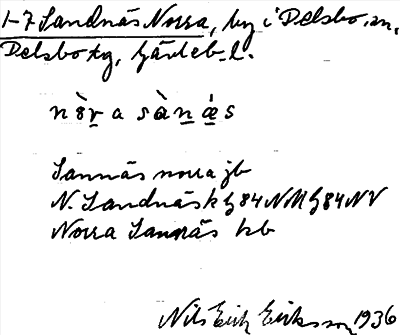 1-7 Sandnäs Norra, by i Delsbo sn,
Delsbo tg, Gävleb. l.
nò̱ṟa sàṉá̱s
Sannäs norra jb
N. Sandnäs k G84NM G84NV
Norra Sannäs kb
Nils Erik Eriksson 1936